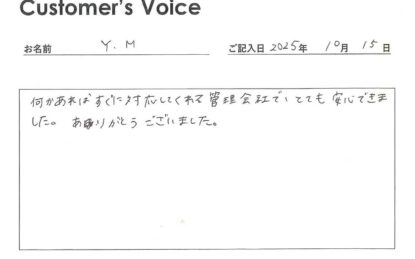 Customer's Voice
お名前 Y. M ご記入日 2025年 10月 15日
何かあればすぐに対応してくれる管理会社で、とても安心できま
した。 ありがとうございました。